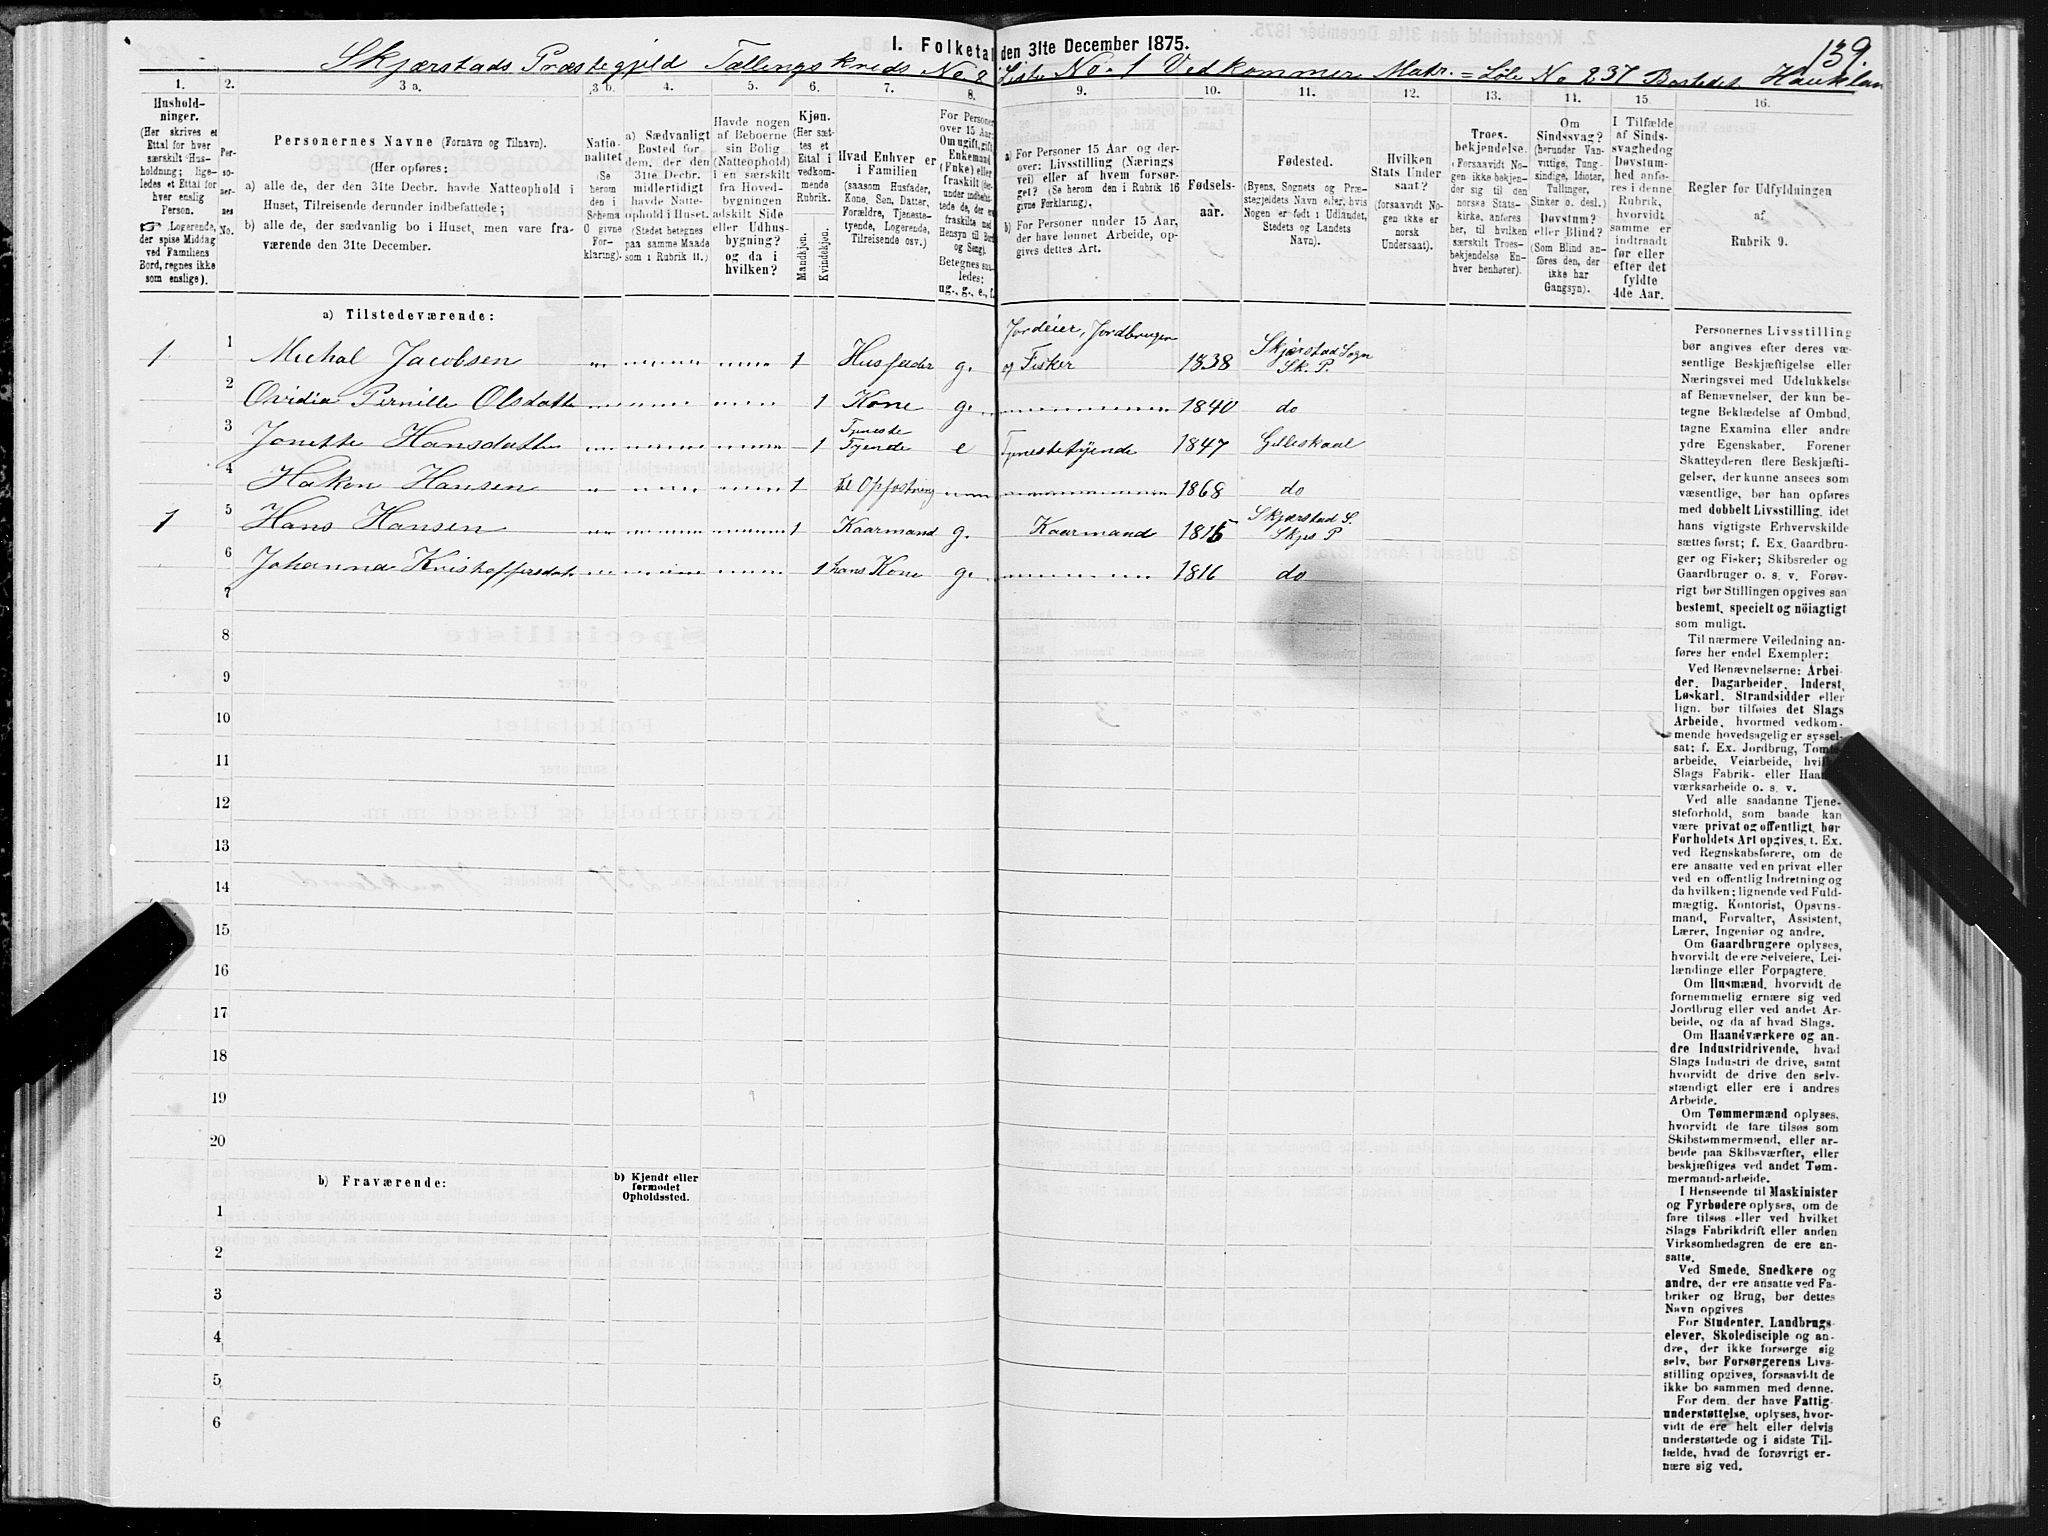 139.
1. Folketal den 31te December 1875.
Skjærstads Præstegjeld Tællingskreds No 8 Liste No. 1 Vedkommer Matr. = Løbe No 237 Bostedet Hauklan
1. 2. 3 a. 3 b. 4. 5. 6. 7. 8. 9. 10. 11. 12. 13. 14. 15. 16.
Hushold-
ninger.
(Her skrives et
Ettal for hver
særskilt Hus-
holdning; lige-
ledes et Ettal for
hver enslig
Person.
Logerende,
der spise Middag
ved Familiens
Bord, regnes ikke
som enslige).
Per-
so-
ner-
nes
No.
Personernes Navne (Fornavn og Tilnavn).
(Her opføres:
a) alle de, der den 31te Decbr. havde Natteophold i
Huset, Tilreisende derunder indbefattede;
b) alle de, der sædvanlig bo i Huset, men vare fra-
værende den 31te December.
Natio-
nalitet
(Se
herom
den i
Schema
O givne
For-
klaring).
a) Sædvanligt
Bosted for
dem, der den
31te Decbr.
midlertidigt
havde Natte-
ophold i Huset.
(Stedet betegnes
paa samme Maade
som i Rubrik 11.)
Havde nogen
af Beboerne
sin Bolig
(Natteophold)
i en særskilt
fra Hoved-
bygningen
adskilt Side
eller Udhus-
bygning?
og da i
hvilken?
Kjøn.
(Her sæt-
tes et
Ettal i
vedkom-
mende
Rubrik.
Mandkjøn.
Kvindekjøn.
Hvad Enhver er
i Familien
(saasom Husfader,
Kone, Søn, Datter,
Forældre, Tjeneste-
tyende, Logerende,
Tilreisende osv.)
For Personer
over 15 Aar:
Om ugift, gift,
Enkemand
(Enke) eller
fraskilt (der-
under indbefat-
tede de, der ere
fraskilte med
Hensyn til Bord
og Seng).
Betegnes saa-
ledes:
ug., g., e., f.
a) For Personer 15 Aar og der-
over: Livsstilling (Nærings
vei) eller af hvem forsør-
get? (Se herom den i Rubrik 16
givne Forklaring).
b) For Personer under 15 Aar,
der have lønnet Arbeide, op-
gives dettes Art.
Fødsels-
aar.
Fødested.
(Byens, Sognets og Præ-
stegjeldets Navn eller, hvis
Nogen er født i Udlandet,
Stedets og Landets
Navn).
Hvilken
Stats Under
saat?
(forsaavidt No-
gen ikke er
norsk
Undersaat).
Troes-
bekjendelse.
(Forsaavidt No-
gen ikke bekjen-
der sig til den
norske Stats-
kirke, anføres
her, til hvilken
særskilt Troes-
bekjendelse En-
hver henhører).
Om
Sindssvag?
(herunder Van-
vittige, Tung-
sindige, Idioter,
Tullinger,
Sinker o. desl.)
Døvstum?
eller Blind?
(Som Blind an-
føres den, der
ikke har
Gangsyn).
I Tilfælde
af Sinds-
svaghed og
Døvstum-
hed anfø-
res i denne
Rubrik,
hvorvidt
samme er
indtraadt
før eller
efter det
fyldte
4de Aar.
Regler for Udfyldningen
af
Rubrik 9.
a) Tilstedeværende:
1 1 Michal Jacobsen 1 Husfader g. Jordeier, Jordbruger og Fisker 1838 Skjærstad Sogn Sk. P.
2 Ovidia Pernille Olsdatte 1 Kone g. 1840 do
3 Jonette Hansdatte 1 Tjeneste Tyende e Tjenestetyende 1847 Gilleskaal
4 Hakon Hansen 1 til Opfostring 1868 do
1 5 Hans Hansen 1 Kaarmand g. Kaarmand 1815 Skjærstad S. Skjs P
6 Johanna Kristoffersdat 1 hans Kone g. 1816 do
7
8
9
10
11
12
13
14
15
16
17
18
19
20
b) Fraværende:
b) Kjendt eller
formodet
Opholdssted.
1
2
3
4
5
6
Personernes Livsstilling
bør angives efter deres væ-
sentlige Beskjæftigelse eller
Næringsvei med Udelukkelse
af Benævnelser, der kun be-
tegne Beklædelse af Ombud,
tagne Examina eller andre
ydre Egenskaber. Forener
Skatteyderen flere Beskjæfti-
gelser, der kunne ansees som
væsentlige, bør han opføres
med dobbelt Livsstilling, idet
hans vigtigste Erhvervskilde
sættes først; f. Ex. Gaardbru-
ger og Fisker; Skibsreder og
Gaardbruger o. s. v. Forøv-
rigt bør Stillingen opgives saa
bestemt, specielt og nöiagtigt
som muligt.
Til nærmere Veiledning an-
føres her endel Exempler:
Ved Benævnelserne: Arbei-
der, Dagarbeider, Inderst,
Løskarl, Strandsidder eller
lign. bør tilføies det Slags
Arbeide, hvormed vedkom-
mende hovedsagelig er syssel-
sat; f. Ex. Jordbrug, Tomte-
arbeide, Veiarbeide, hvil
Slags Fabrik- eller Haan
værksarbeide o. s. v.
Ved alle saadanne Tjene-
steforhold, som baade kan
være privat og offentligt, bør
Forholdets Art opgives, t. Ex.
ved Regnskabsførere, om de
ere ansatte ved en privat eller
ved en offentlig Indretning og
da hvilken; lignende ved Fuld-
mægtig, Kontorist, Opsyns-
mand, Forvalter, Assistent,
Lærer, Ingeniør og andre.
Om Gaardbrugere oplyses,
hvorvidt de ere Selveiere, Lei-
lændinge eller Forpagtere.
Om Husmænd, hvorvidt de
fornemmelig ernære sig ved
Jordbrug eller ved andet Ar-
beide, og da af hvad Slags.
Om Haandværkere og an-
dre Industridrivende, hvad
Slags Industri de drive, samt
hvorvidt de drive den selv-
stændigt eller ere i andres
Arbeide.
Om Tømmermænd oplyses,
hvorvidt de fare tilsøs som
Skibstømmermænd, eller ar-
beide paa Skibsværfter, eller
beskjæftiges ved andet Tøm-
mermand-arbeide.
I Henseende til Maskinister
og Fyrbødere oplyses, om de
fare tilsøs eller ved hvilket
Slags Fabrikdrift eller anden
Virksomhedsgren de ere an-
satte.
Ved Smede, Snedkere og
andre, der ere ansatte ved Fa-
briker og Brug, bør dettes
Navn opgives
For Studenter, Landbrugs
elever, Skoledisciple og an-
dre, der ikke forsørge sig
selv, bør Forsørgerens Livs-
stilling opgives, forsaavidt de
ikke bo sammen med denne.
For dem, der have Fattig-
understøttelse, oplyses, hvor-
vidt de ere helt eller delvis
understøttede og i sidste Til-
fælde, hvad de forøvrigt er-
nære sig ved.